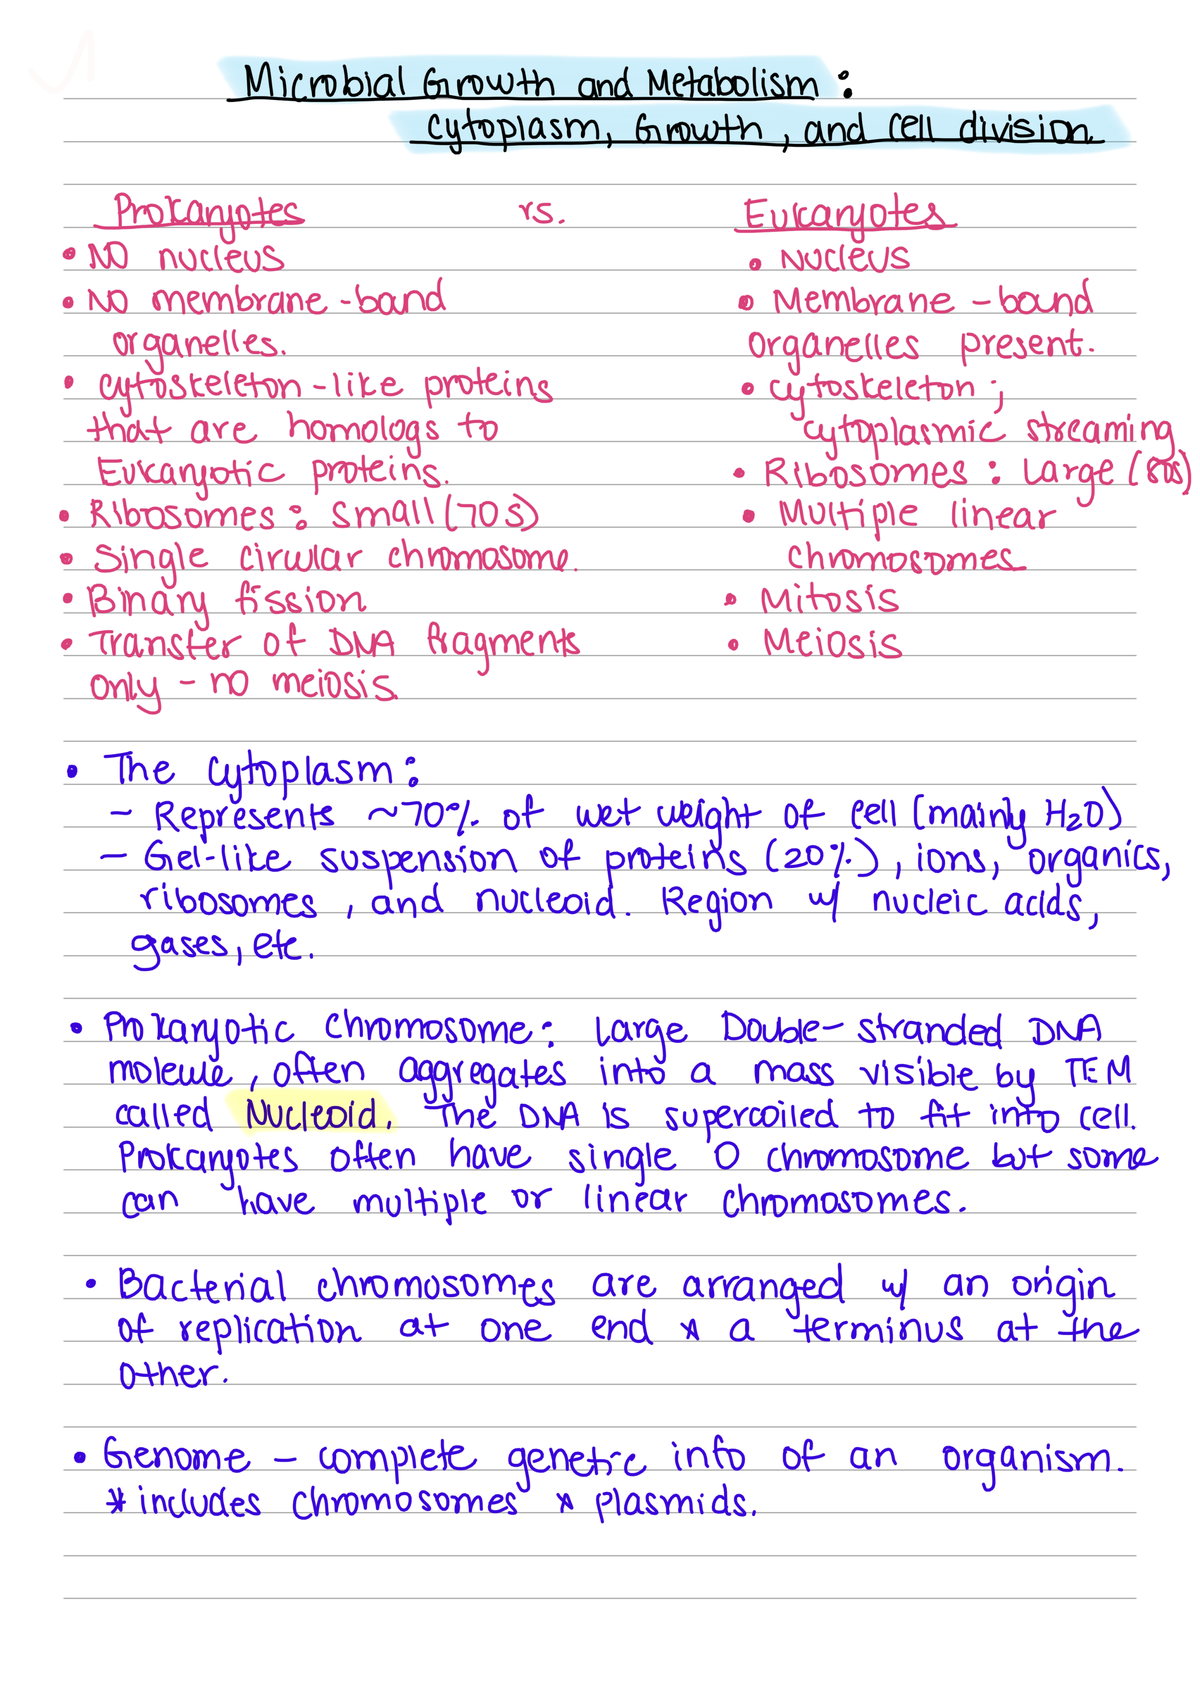 Microbial Growth and Metabolism :
Cytoplasm, Growth, and cell division.
Prokaryotes vs. Eukaryotes
• NO nucleus
• Nucleus
• NO membrane-bound
organelles.
• Membrane-bound
organelles present.
• cytoskeleton-like proteins
that are homologs to
Eukaryotic proteins.
• cytoskeleton ;
cytoplasmic streaming
• Ribosomes : Large (80s)
• Ribosomes : small (70s)
• Multiple linear
chromosomes
• Single cirular chromosome.
• Binary fission
• Mitosis
• Transfer of DNA fragments
only - no meiosis
• Meiosis
• The cytoplasm :
- Represents ~70% of wet weight of cell (mainly H2O)
- Gel-like suspension of proteins (20%), ions, organics,
ribosomes, and nucleoid. Region w/ nucleic acids,
gases, etc.
• Prokaryotic chromosome: Large Double-stranded DNA
molecule, often aggregates into a mass visible by TEM
called Nucleoid. The DNA is supercoiled to fit into cell.
Prokaryotes often have single O chromosome but some
can have multiple or linear chromosomes.
• Bacterial chromosomes are arranged w/ an origin
of replication at one end & a terminus at the
other.
• Genome - complete genetic info of an organism.
* includes chromosomes & plasmids.